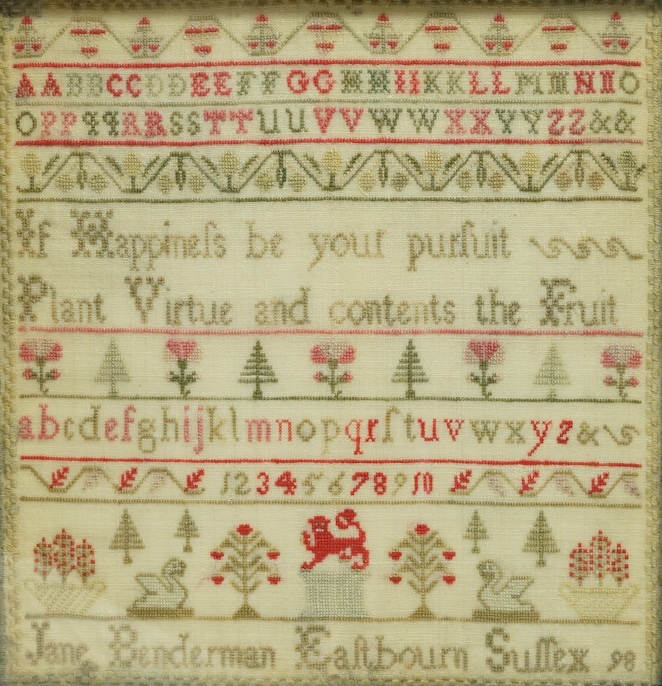 AABBCCDDEEFFGGHHIIKKLLMMNNO
OPPqqRRSSTTUUVVWWXXYYZZ&&
If Happineſs be your purſuit
Plant Virtue and contents the Fruit
abcdefghijklmnopqrſtuvwxyz&
12345678910
Jane Benderman Eaſtbourn Suſſex 98